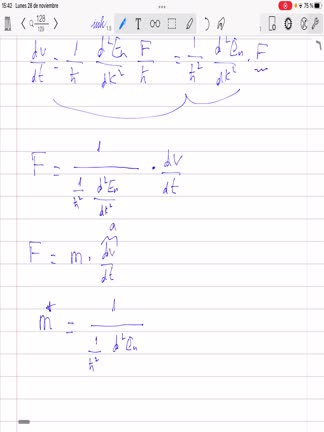 15:42 Lunes 28 de noviembre
75 %
128
129
dv/dt = 1/ħ d²En/dk² F/ħ = 1/ħ² d²En/dk² · F
F = 1/(1/ħ² d²En/dk²) · dv/dt
a
F = m · dv/dt
m* = 1/(1/ħ² d²En